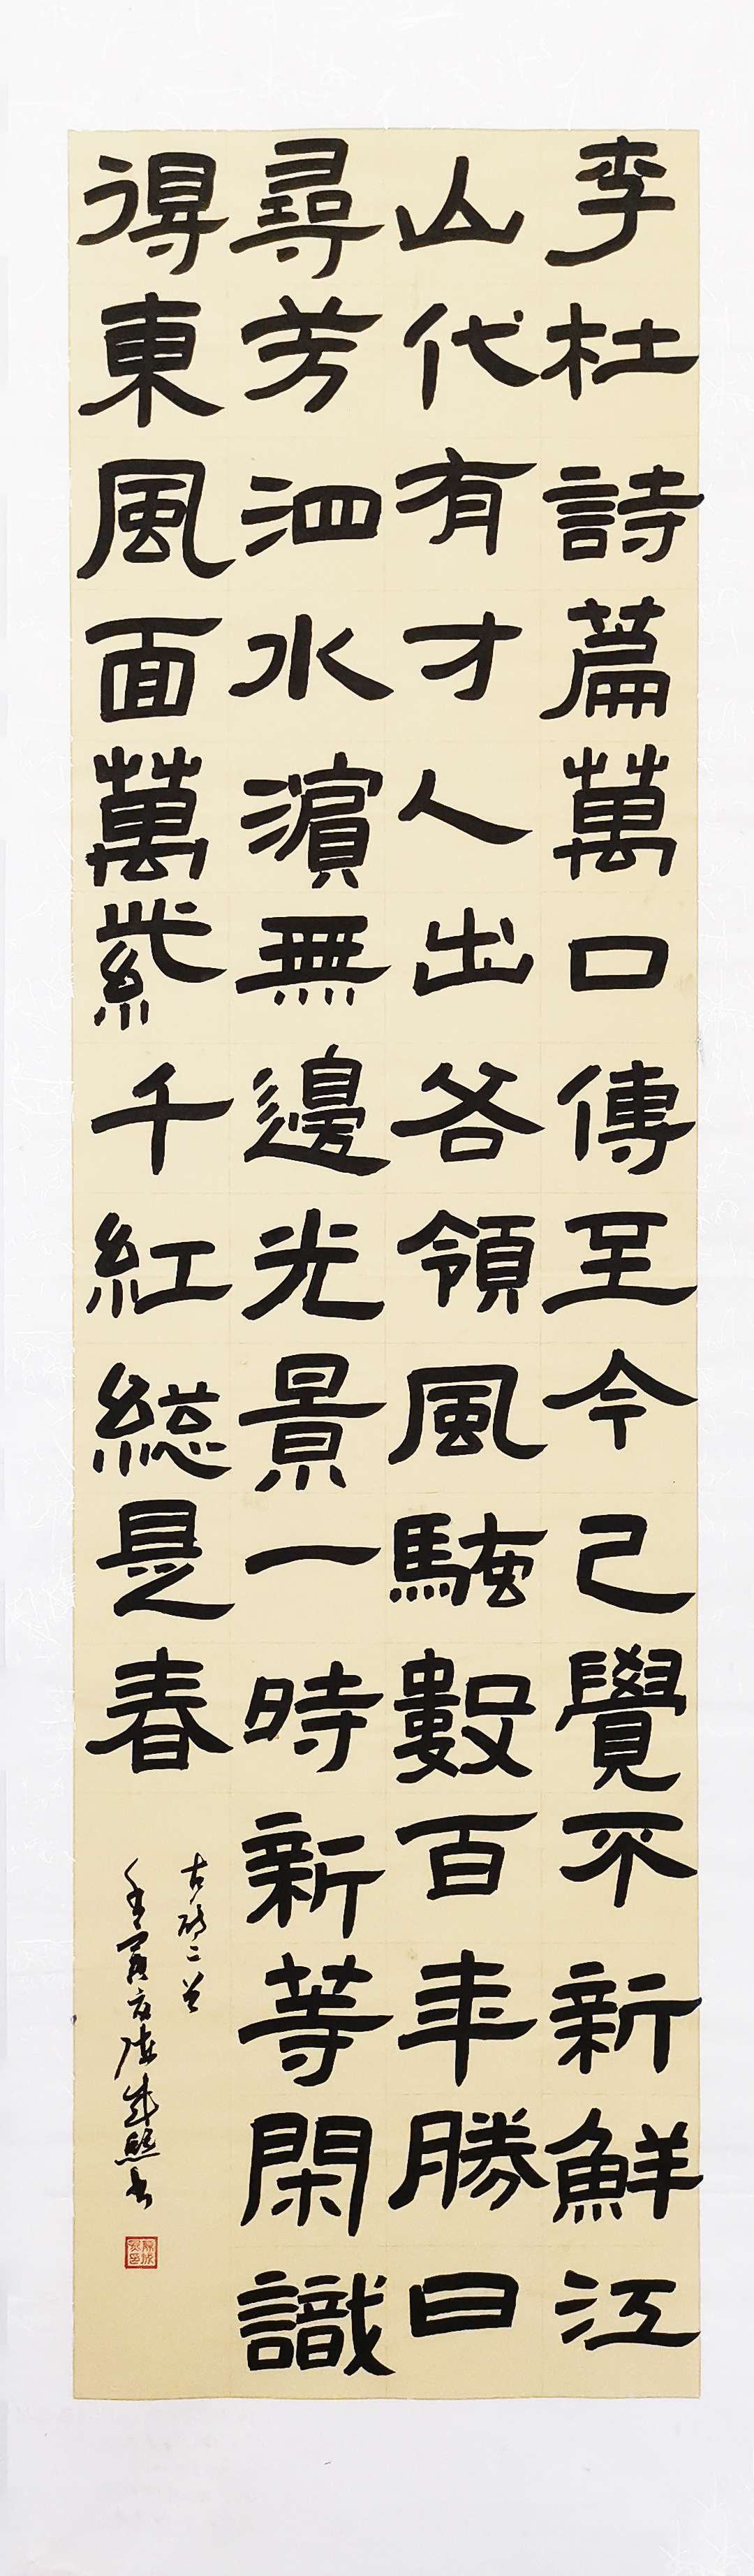 李杜詩篇萬口傳至今已覺不新鮮江
山代有才人出各領風騷數百年勝日
尋芳泗水濱無邊光景一時新等閑識
得東風面萬紫千紅總是春
古詩二首
書